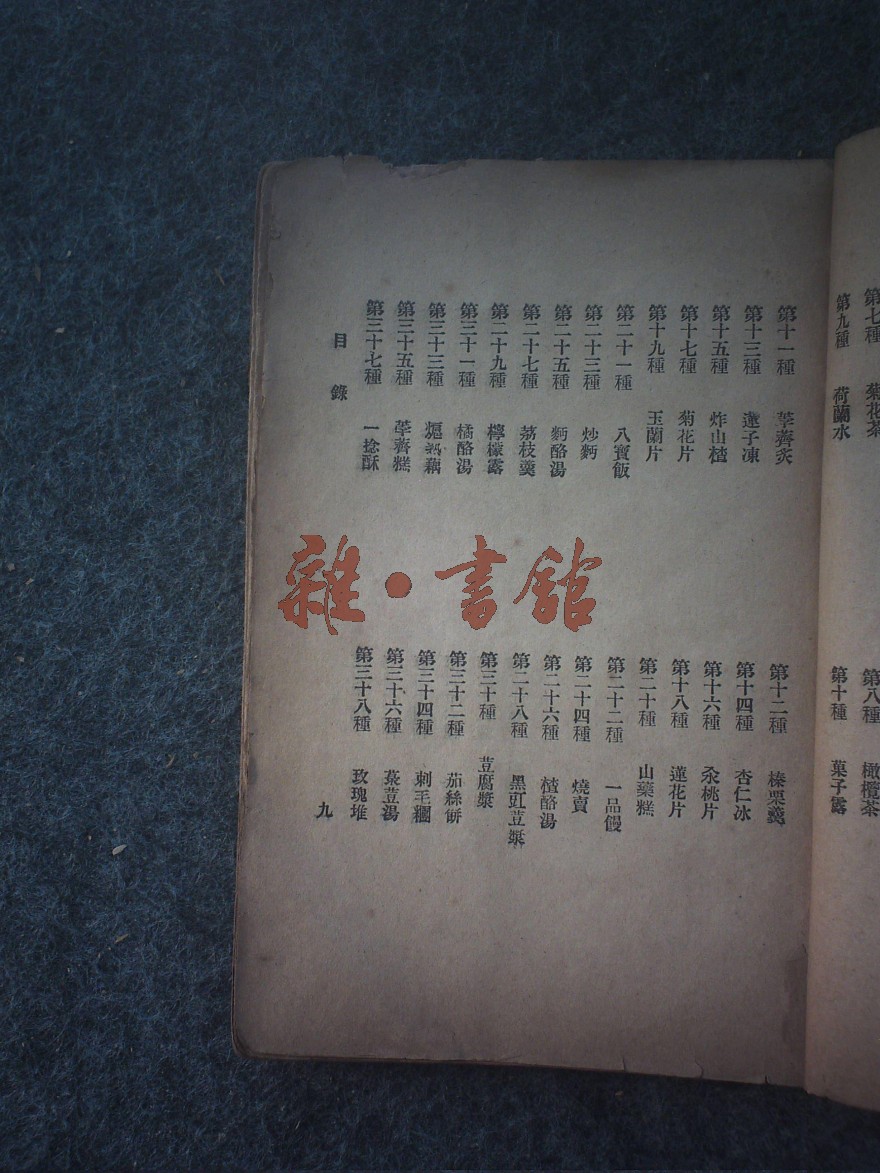 第七種　菊花茶
第八種　橄欖茶
第九種　荷蘭水
第十種　菓子露
第十一種　荸薺炙
第十二種　榛栗羹
第十三種　蓮子凍
第十四種　杏仁冰
第十五種　炸山楂
第十六種　汆桃片
第十七種　菊花片
第十八種　蓮花片
第十九種　玉蘭片
第二十種　山藥糕
第二十一種　八寶飯
第二十二種　一品饅
第二十三種　炒麪
第二十四種　燒賣
第二十五種　麪酪湯
第二十六種　楂酪湯
第二十七種　荔枝羹
第二十八種　黑豇荳漿
第二十九種　檸檬露
第三十種　荳腐漿
第三十一種　橘酪湯
第三十二種　茄絲餅
第三十三種　熝熟藕
第三十四種　刺毛糰
第三十五種　荸薺糕
第三十六種　荳湯
第三十七種　一捻酥
第三十八種　玫瑰堆
目錄
九
雜·書館